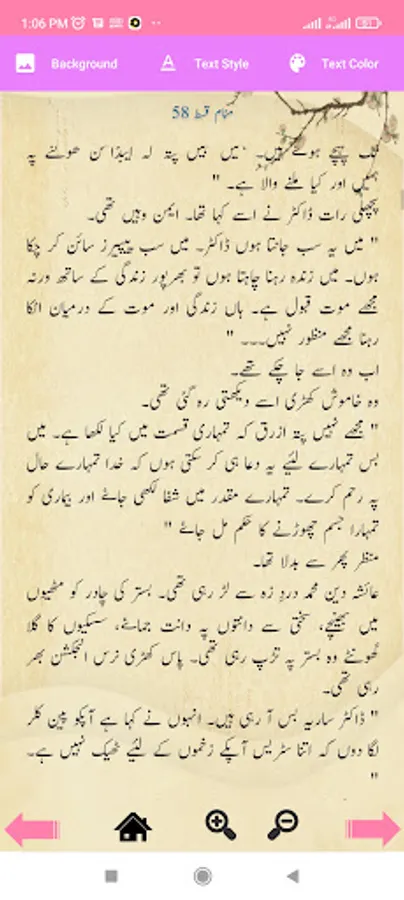 1:06 PM
Background
Text Style
Text Color
منام قسط 58
پہنچے ہوئے ہیں۔ میں نہیں پتہ کہ ایپڈا سن کھولنے پہ
ہمیں اور کیا ملنے والا ہے۔ "
پچھلی رات ڈاکٹر نے اسے کہا تھا۔ ایمن وہیں تھی۔
" میں یہ سب جانتا ہوں ڈاکٹر۔ میں سب پیپرز سائن کر چکا
ہوں۔ میں زندہ رہنا چاہتا ہوں تو بھرپور زندگی کے ساتھ ورنہ
مجھے موت قبول ہے۔ ہاں زندگی اور موت کے درمیان اٹکا
رہنا مجھے منظور نہیں۔۔۔ "
اب وہ اسے جا چکے تھے۔
وہ خاموش کھڑی اسے دیکھتی رہ گئی تھی۔
" مجھے نہیں پتہ ازرق کہ تمہاری قسمت میں کیا لکھا ہے۔ میں
بس تمہارے لئیے یہ دعا ہی کر سکتی ہوں کہ خدا تمہارے حال
پہ رحم کرے۔ تمہارے مقدر میں شفا لکھی جائے اور بیماری کو
تمہارا جسم چھوڑنے کا حکم مل جائے "
منظر پھر سے بدلا تھا۔
عائشہ دین محمد دردِ زہ سے لڑ رہی تھی۔ بستر کی چادر کو مٹھیوں
میں بھینچے، سختی سے دانتوں پہ دانت جمائے، سسکیوں کا گلا
گھونٹے وہ بستر پہ تڑپ رہی تھی۔ پاس کھڑی نرس انجکشن بھر
رہی تھی۔
" ڈاکٹر ساریہ بس آ رہی ہیں۔ انہوں نے کہا ہے آپکو پین کلر
لگا دوں کہ اتنا سٹریس آپکے زخموں کے لئیے ٹھیک نہیں ہے۔
"